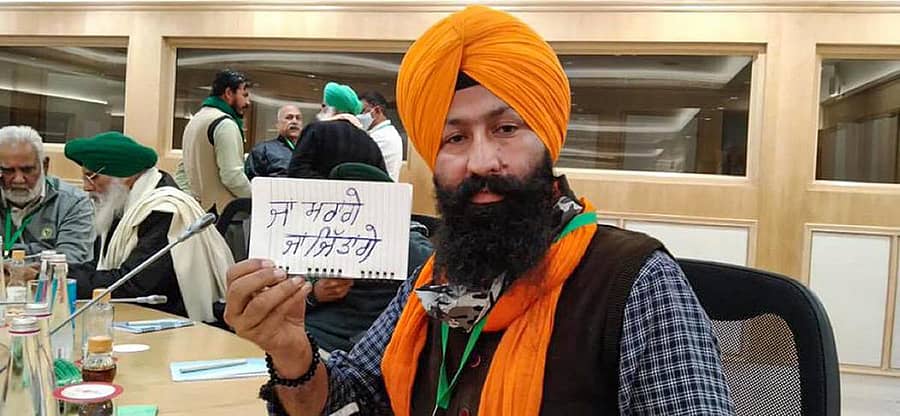 ਜਾ ਮਰਾਗੇ
ਜਾਂ ਜਿੱਤਾਂਗੇ